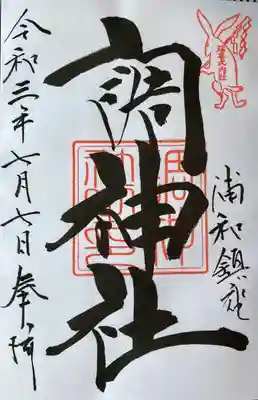 浦和鎮座
調神社
令和三年七月七日 奉拝